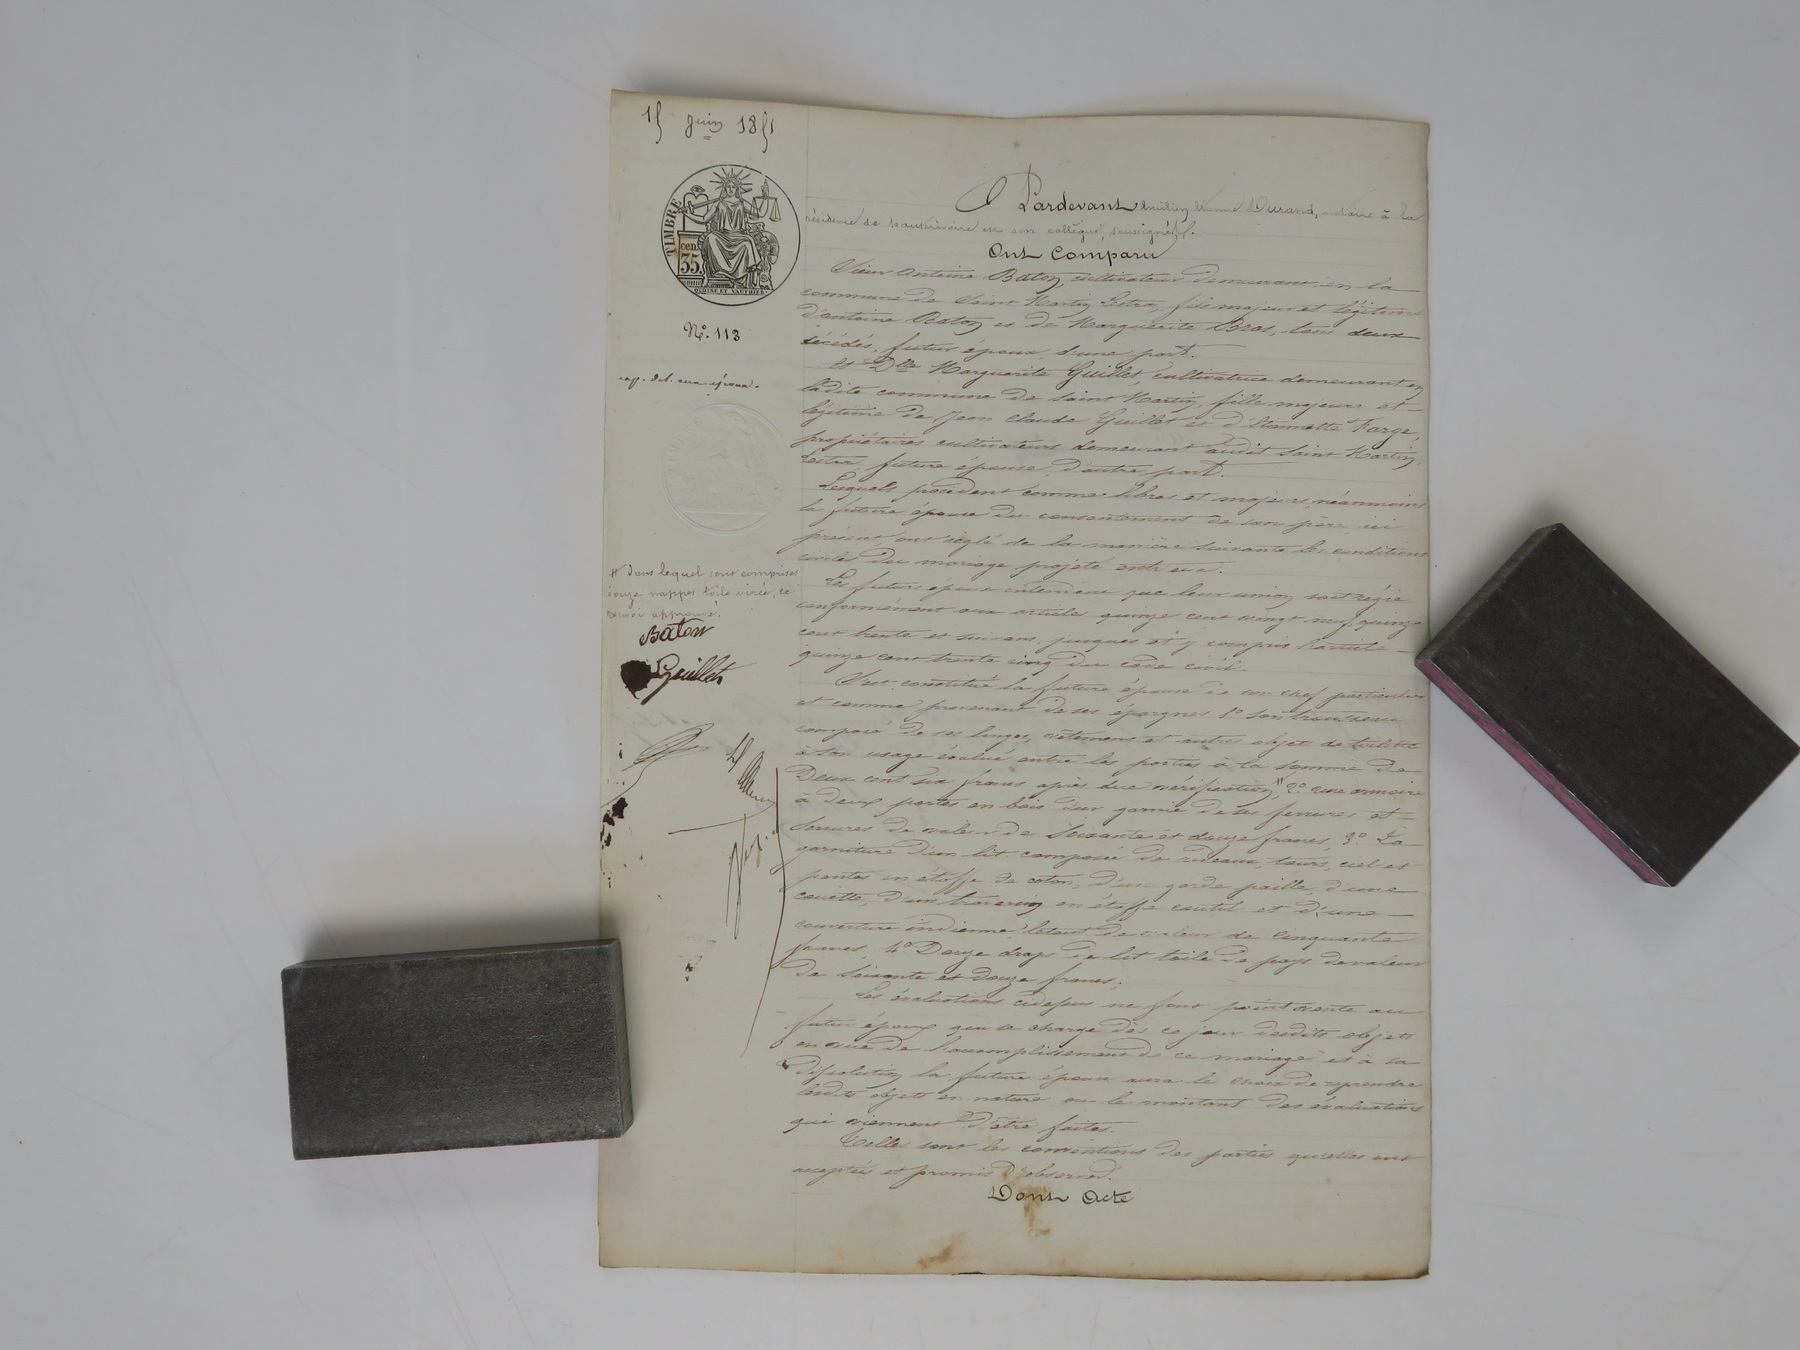 15 juin 1851
TIMBRE
cent
35
OUDINÉ ET VAUTHIER
N°. 113
exp. del. aux époux.
Pardevant Durand, notaire à la
résidence de et son collègue, soussignés.
Ont Comparu
Sieur Antoine Baton, cultivateur demeurant en la
commune de Saint Martin Lestra, fils majeur et légitime
d'antoine Baton et de Marguerite Bras, tous deux
décédés, futur époux d'une part.
Et Dlle Marguerite Guillet, cultivatrice demeurant en
ladite commune de Saint Martin, fille majeure et
légitime de Jean Claude Guillet et d'Etiennette Farge,
propriétaires cultivateurs demeurant audit Saint Martin
Lestra, future épouse, d'autre part.
Lesquels procédant comme libres et majeurs, néanmoins
la future épouse du consentement de son père ici
présent ont réglé de la manière suivante les conditions
civiles du mariage projeté entr'eux.
Les futurs époux entendent que leur union soit régie
conformément aux articles quinze cent vingt neuf, quinze
cent trente et suivans, jusques et y compris l'article
quinze cent trente cinq du code civil.
S'est constitué la future épouse de son chef particulier
et comme provenant de ses épargnes 1° son trousseau
composé de ses linges, vêtemens et autres objets de toilette
à son usage évalué entre les parties à la somme de
Deux cent dix francs après due vérification, # 2° une armoire
à deux portes en bois dur garnie de ses ferrures et
serrures de valeur de Soixante et douze francs, 3° La
garniture d'un lit composée de rideaux, tours, ciel et
pentes en étoffe de coton, d'un garde paille, d'une
couette, d'un traversin en étoffe coutil et d'une
couverture indienne, le tout de valeur de cinquante
francs, 4° Douze draps de lit toile de pays de valeur
de soixante et douze francs;
Les évaluations cidessus ne font point vente au
futur époux qui se charge dès ce jour desdits objets
en vue de l'accomplissement de ce mariage et à sa
dissolution la future épouse aura le choix de reprendre
lesdits objets en nature ou le montant des évaluations
qui viennent d'être faites.
Telles sont les conventions des parties qu'elles ont
acceptées et promis d'observer.
Dont Acte
# dans lequel sont comprises
douze nappes toile virée, ce
renvoi approuvé.
Baton
Guillet